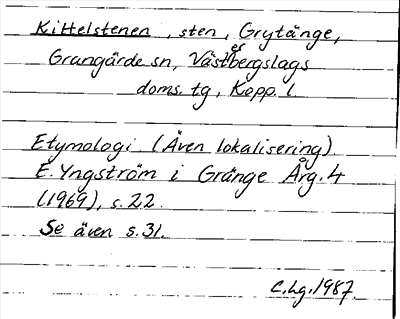 Kittelstenen, sten, Grytänge,
Grangärde sn, Västerbergslags
doms. tg, Kopp. l.
Etymologi (Även lokalisering)
E. Yngström i Gränge Årg. 4
(1969), s. 22.
Se även s. 31.
C. Lg. 1987